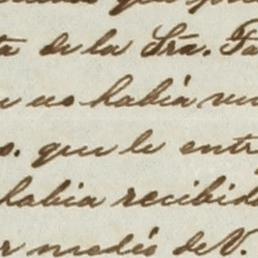 que
ta de la Sra. Fa
no había
o. que le entr
había recibido
r medio de V.